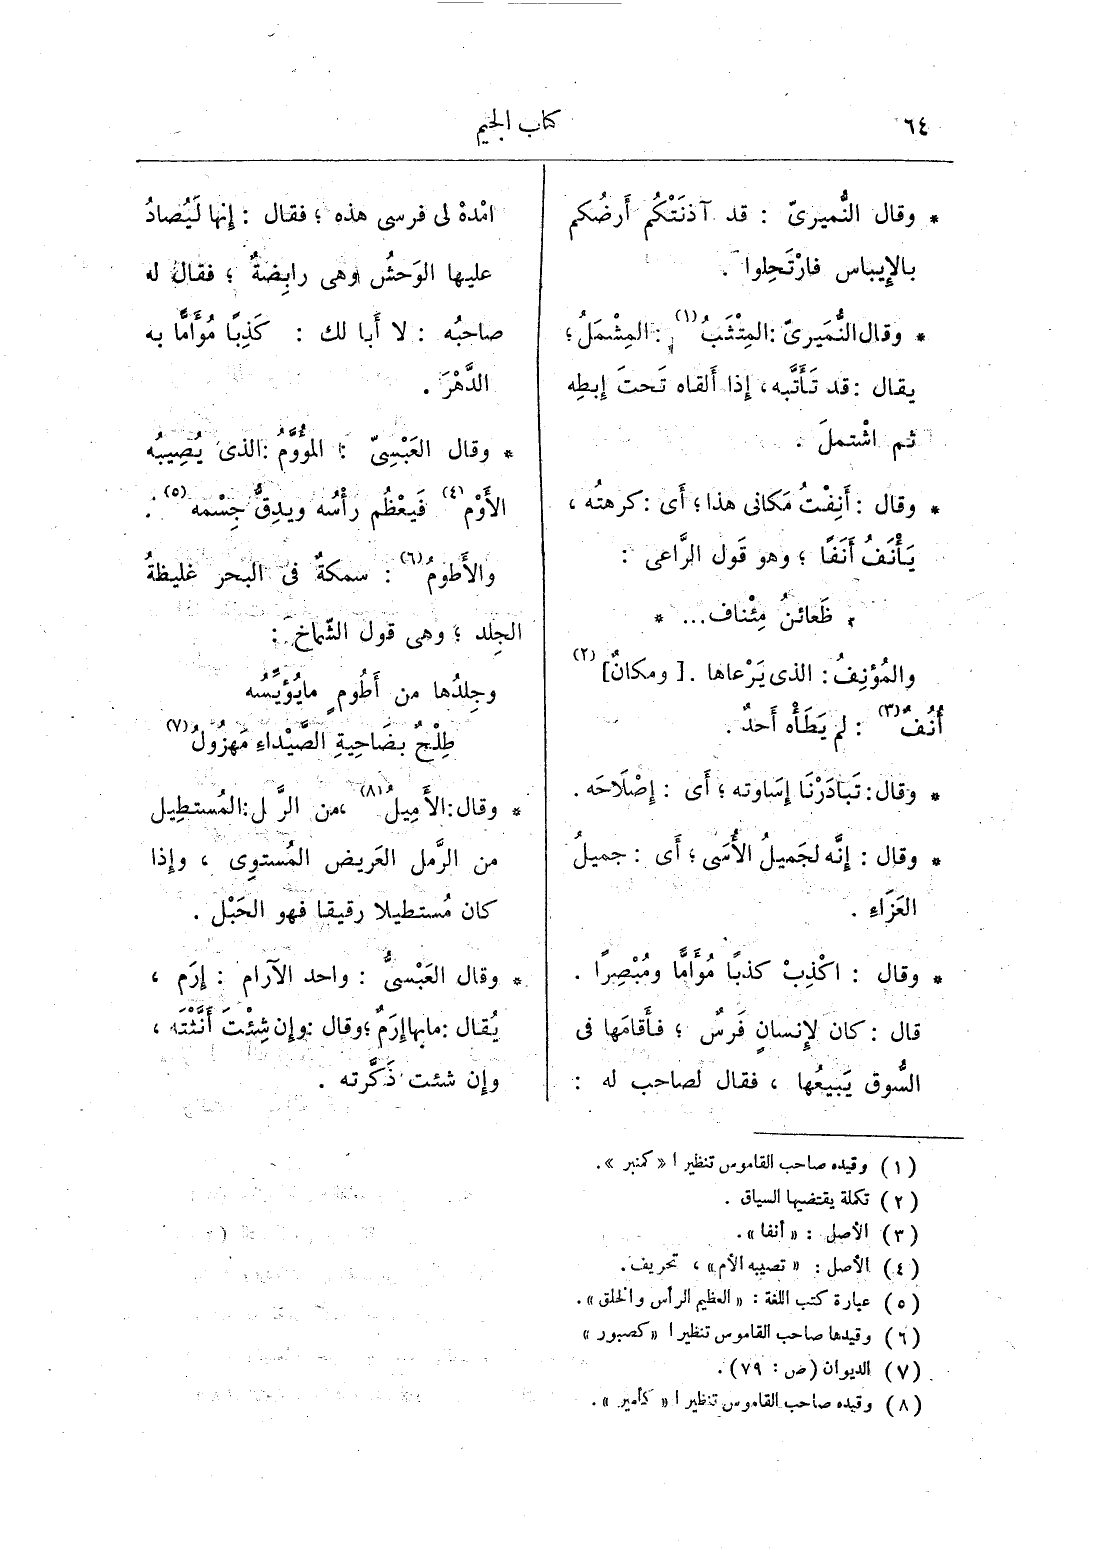 ٦٤
كتاب الجيم
* وقال النُّميرىّ : قد آذنَتْكُم أَرضُكم
بالإيباس فارْتَحِلوا .
* وقال النُّمَيرىّ : المِئْثَبُ (١) : المِشْمَلُ ؛
يقال : قد تَأَثَّبه ، إذا أَلقاه تَحتَ إبطِه
ثم اشْتملَ .
* وقال : أَنِفْتُ مَكانى هذا ؛ أَى : كرهتُه ،
يَأْنَفُ أَنَفًا ؛ وهو قَول الرَّاعى :
* ظَعائنُ مِئْناف... *
والمُؤنِفُ : الذى يَرْعاها . [ ومكانٌ ] (٢)
أُنُفٌ (٣) : لم يَطَأْه أَحدٌ .
* وقال : تَبادَرْنَا إسَاوته ؛ أَى : إصْلَاحَه .
* وقال : إنَّه لجَميلُ الأُسَى ؛ أَى : جميلُ
العَزَاءِ .
* وقال : اكْذِبْ كذبًا مُؤَامًّا ومُبْصِرًا .
قال : كان لإنسانٍ فَرسٌ ؛ فأَقامَها فى
السُّوق يَبيعُها ، فقال لصاحب له :
امْدهْ لى فرسى هذه ؛ فقال : إنها لَيُصادُ
عليها الوَحشُ وهى رابِضةٌ ؛ فقال له
صاحبُه : لا أَبا لك : كَذِبًا مُؤَامًّا به
الدَّهْرَ .
* وقال العَبْسِىّ : المؤَوَّمُ : الذى يُصِيبُه
الأَوْم (٤) فَيعْظُم رأْسُه ويدِقُّ جِسْمه (٥) .
والأَطومُ (٦) : سمكةٌ فى البحر غليظةُ
الجِلد ؛ وهى قول الشّماخ :
وجِلدُها من أَطُومٍ مايُؤيِّسُه
طِلْحٌ بضَاحِيةِ الصَّيْداءِ مَهزُولُ (٧)
* وقال : الأَمِيلُ (٨) ، من الرَّ ل : المُستطِيل
من الرَّمل العَريض المُستوِى ، وإذا
كان مُستطيلا رقيقا فهو الحَبْل .
* وقال العَبْسىُّ : واحد الآرام : إرَم ،
يُقال : مابها إرَمٌ ؛ وقال : وإن شِئْتَ أَنَّثْتَه ،
وإن شئت ذَكَّرته .
(١) وقيده صاحب القاموس تنظيرا « كمنبر » .
(٢) تكملة يقتضيها السياق .
(٣) الأصل : « أنفا » .
(٤) الأصل : « تصيبه الأم » ، تحريف .
(٥) عبارة كتب اللغة : « العظيم الرأس والخلق » .
(٦) وقيدها صاحب القاموس تنظيرا « كصبور »
(٧) الديوان (ص : ٧٩) .
(٨) وقيده صاحب القاموس تنظيرا « كأمير » .